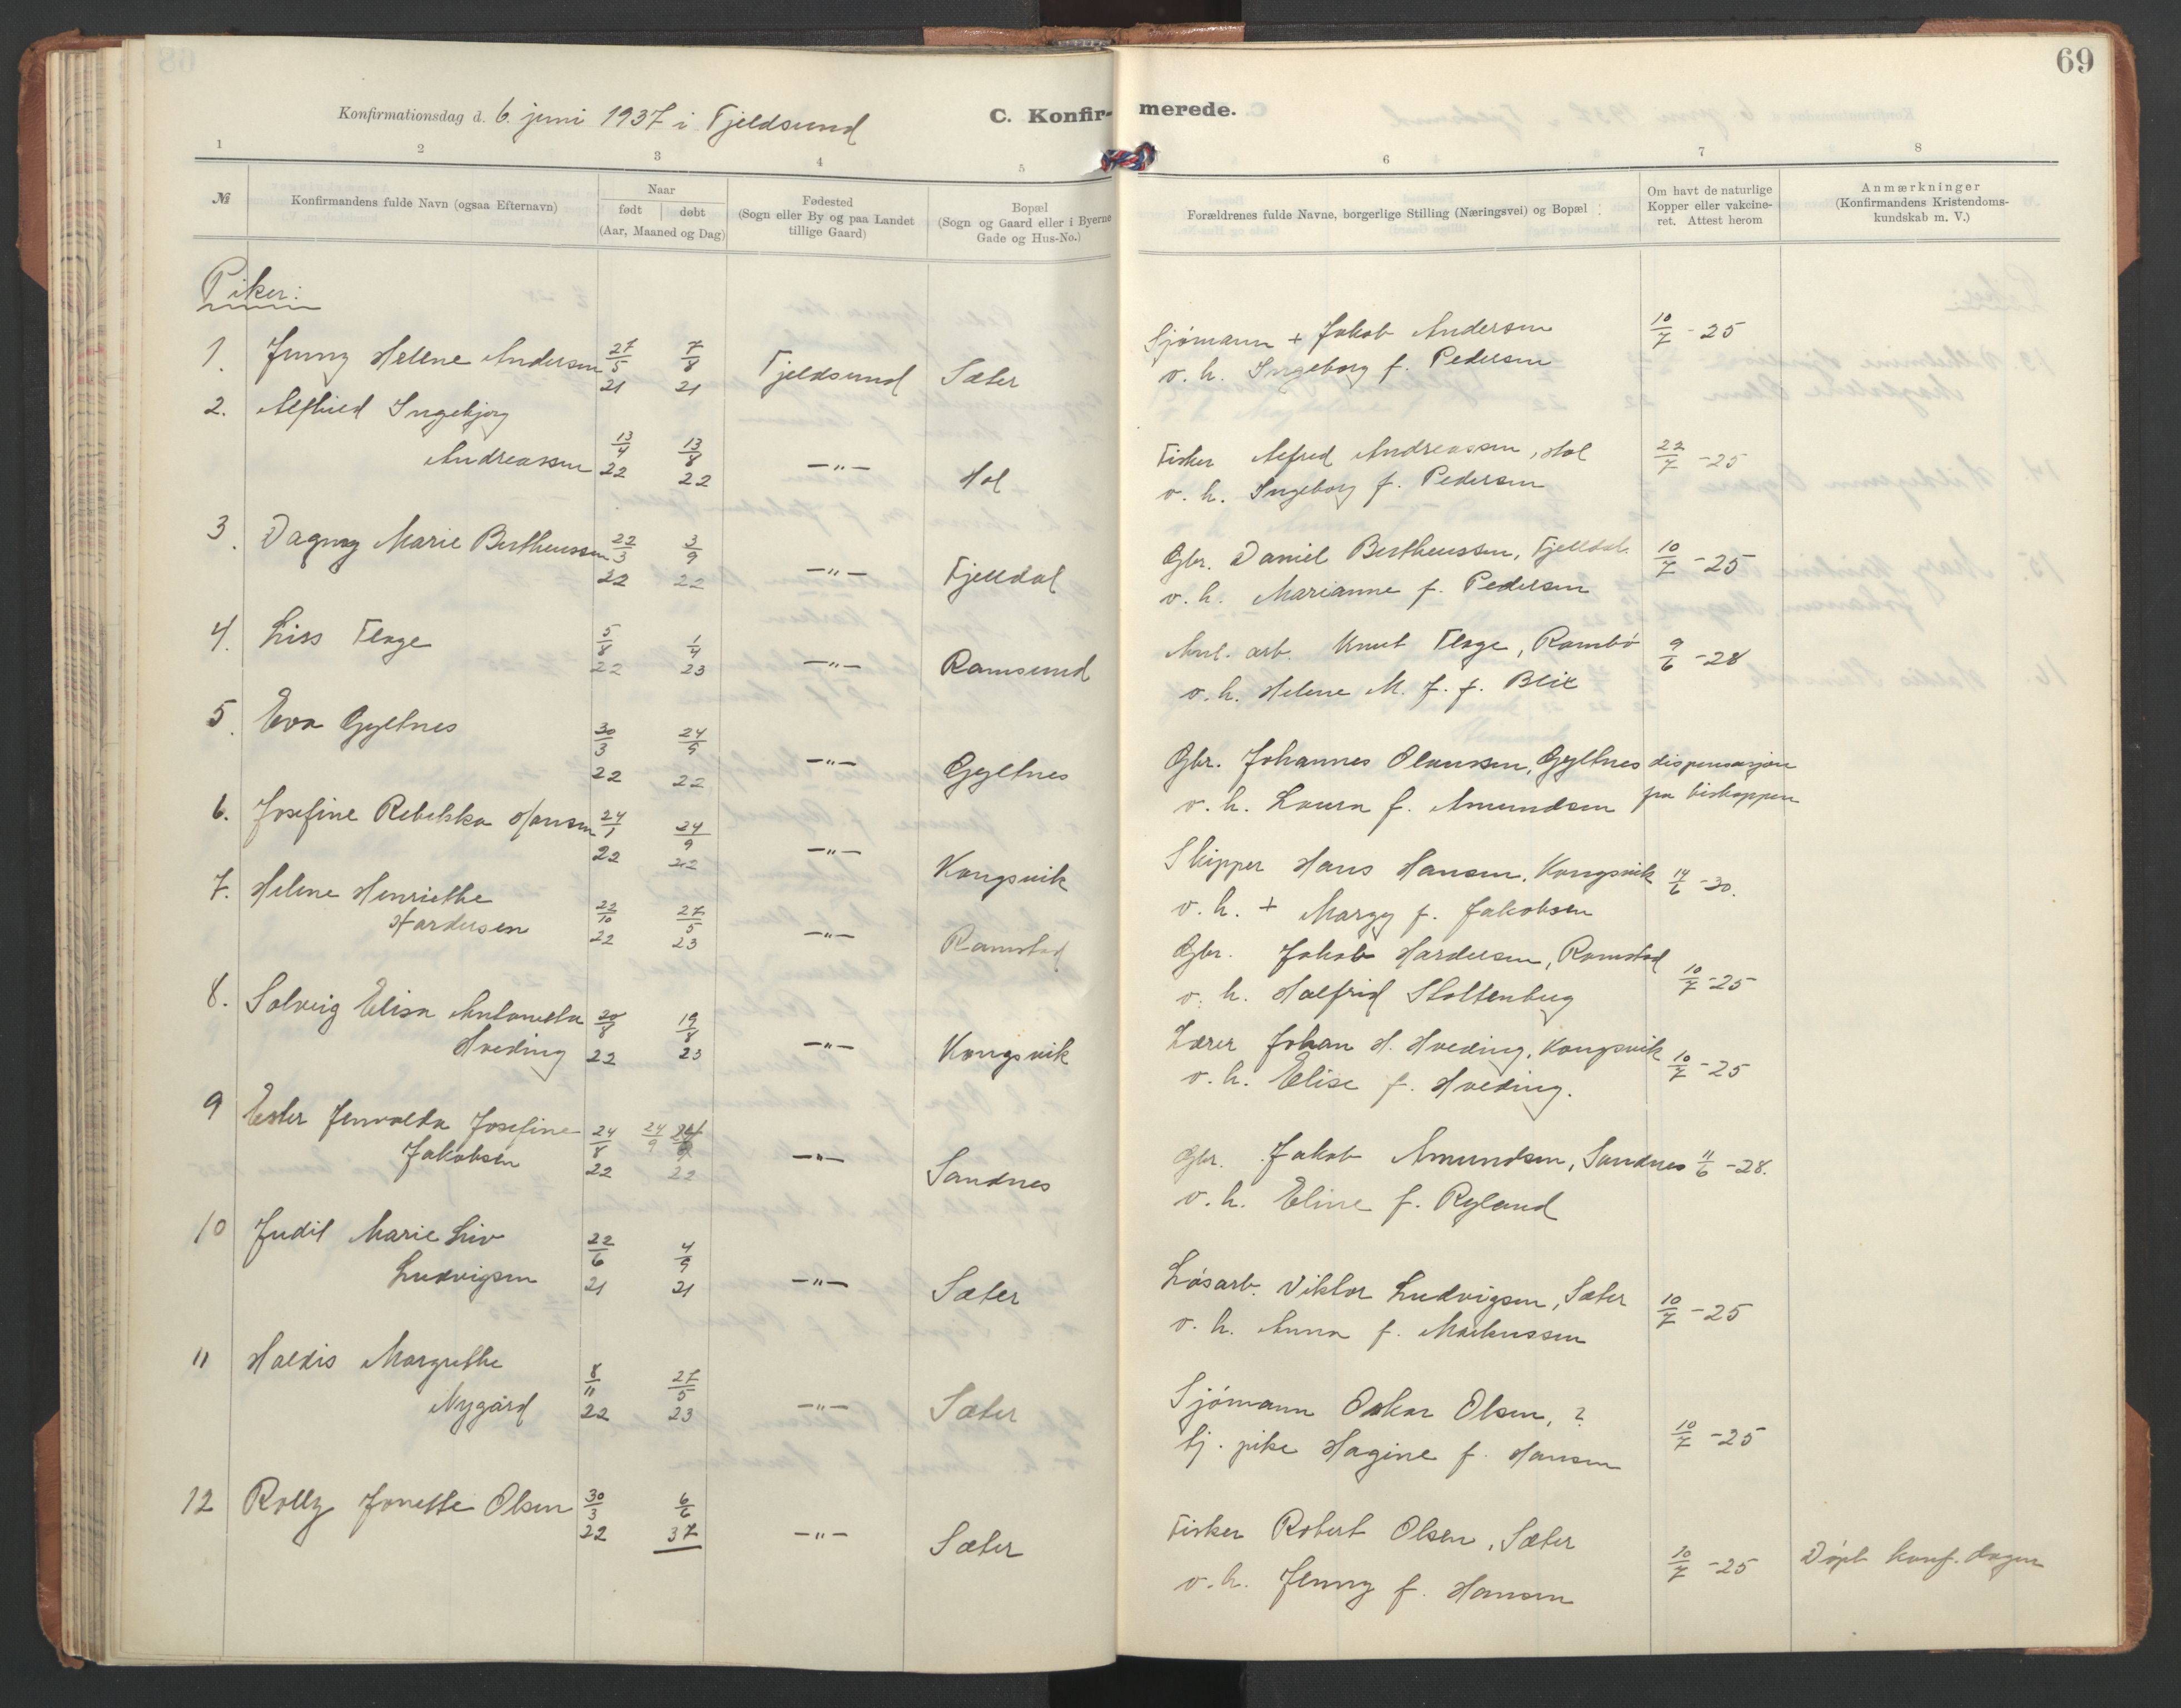 69
Konfirmationsdag d. 6. juni 1937 i Fjeldsund
C. Konfir-
merede.
1 2 3 4 5 6 7 8
№
Konfirmandens fulde Navn (ogsaa Efternavn)
Naar
født | døbt
(Aar, Maaned og Dag)
Fødested
(Sogn eller By og paa Landet
tillige Gaard)
Bopæl
(Sogn og Gaard eller i Byerne
Gade og Hus-No.)
Forældrenes fulde Navne, borgerlige Stilling (Næringsvei) og Bopæl
Om havt de naturlige
Kopper eller vakcine-
ret. Attest herom
Anmærkninger
(Konfirmandens Kristendoms-
kundskab m. V.)
Piker:
1. Jenny Helene Andersen 27/5 21 7/8 21 Fjeldsund Sæter
Sjømann + Jakob Andersen 10/7 - 25
v. h. Ingeborg f. Pedersen
2. Alfhild Ingebjørg
Andreassen 13/4 22 13/8 22 —"— Hol
Fisker Alfred Andreassen, Hol 22/7 - 25
v. h. Ingeborg f. Pedersen
3. Dagny Marie Bertheussen 22/3 22 3/9 22 —"— Fjelldal
Gbr. Daniel Bertheussen, Fjelldal. 10/7 - 25
v. h. Marianne f. Pedersen
4. Liss Flage 5/8 22 1/4 23 —"— Ramsund
Anl. arb. Knut Flage, Rambø 9/6 - 28
v. h. Helene M. J. f. Blix
5. Eva Gyltnes 30/3 22 24/9 22 —"— Gyltnes
Gbr. Johannes Olaussen, Gyltnes dispensasjon
v. h. Laura f. Amundsen fra biskoppen
6. Josefine Rebekka Hansen 24/1 22 24/9 22 —"— Kongsvik
Skipper Hans Hansen, Kongsvik 14/6 - 30.
v. h. + Margy f. Jakobsen
7. Helene Henriethe
Hardersen 22/10 22 27/5 23 —"— Ramstad
Gbr. Jakob Hardersen, Ramstad 10/7 - 25
v. h. Halfrid Stoltenberg
8. Solveig Elisa Antonetta
Hveding 20/8 22 19/8 23 —"— Kongsvik
Lærer Johan H. Hveding, Kongsvik 10/7 - 25
v. h. Elise f. Hveding.
9 Ester Jenvalda Josefine
Jakobsen 24/8 22 24/9 22 —"— Sandnes
Gbr. Jakob Amundsen, Sandnes 11/6 - 28.
v. h. Eline f. Ryland
10 Judit Marie Liv
Ludvigsen 22/6 21 4/9 21 —"— Sæter
Løsarb. Viktor Ludvigsen, Sæter 10/7 - 25
v. h. Anna f. Markussen
11 Haldis Margrethe
Nygård 8/11 22 27/5 23 —"— Sæter
Sjømann Oskar Olsen, ? 10/7 - 25
tj. pike Hagine f. Hansen
12 Rolly Jonette Olsen 30/3 22 6/6 37 —"— Sæter
Fisker Robert Olsen, Sæter 10/7 - 25 Døpt konf. dagen
v. h. Jenny f. Hansen